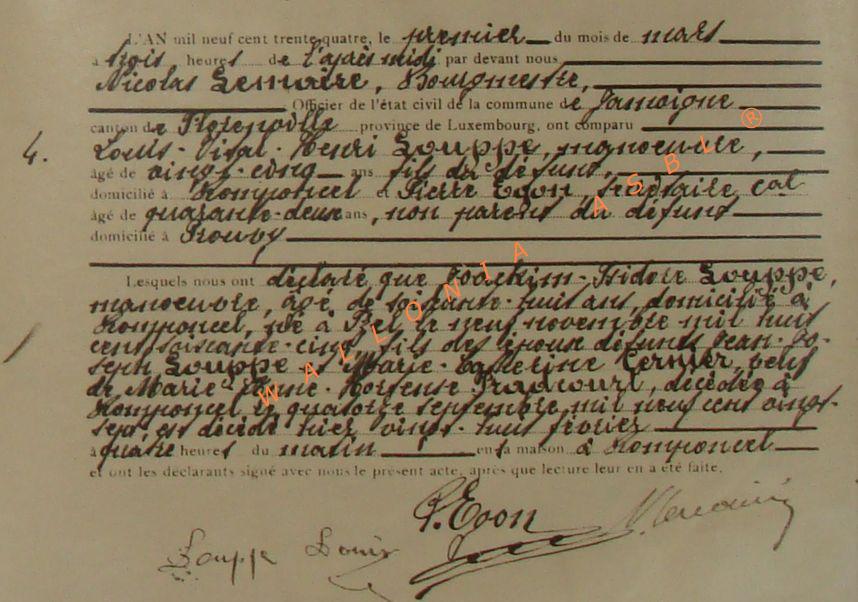 L'AN mil neuf cent trente quatre, le premier du mois de mars
à trois heures de l'après midi par devant nous
Nicolas Lemaire, Bourgmestre,
Officier de l'état civil de la commune de Jamoigne
canton de Florenville province de Luxembourg, ont comparu
4. Louis-Vital-Henri Louppe, manoeuvre,
âgé de vingt-cinq ans fils du défunt,
domicilié à Romponcel et Pierre Egon, secrétaire cal
âgé de quarante-deux ans, non parent du défunt
domicilié à Prouvy
Lesquels nous ont déclaré que Joackim-Isidore Louppe,
manoeuvre, âgé de soixante-huit ans, domicilié à
Romponcel, né à Izel, le neuf novembre mil huit
cent soixante-cinq, fils des époux défunts Jean-Jo-
seph Louppe et Marie-Catherine Kernier, veuf
de Marie-Anne-Hortense Pradcourt, décédée à
Romponcel le quatorze septembre mil neuf cent vingt-
sept, est décédé hier vingt-huit février
à quatre heures du matin en sa maison à Romponcel
et ont les déclarants signé avec nous le présent acte, après que lecture leur en a été faite.
P. Egon
N Lemaire
Louppe Louis
WALLONIA ASBL ®